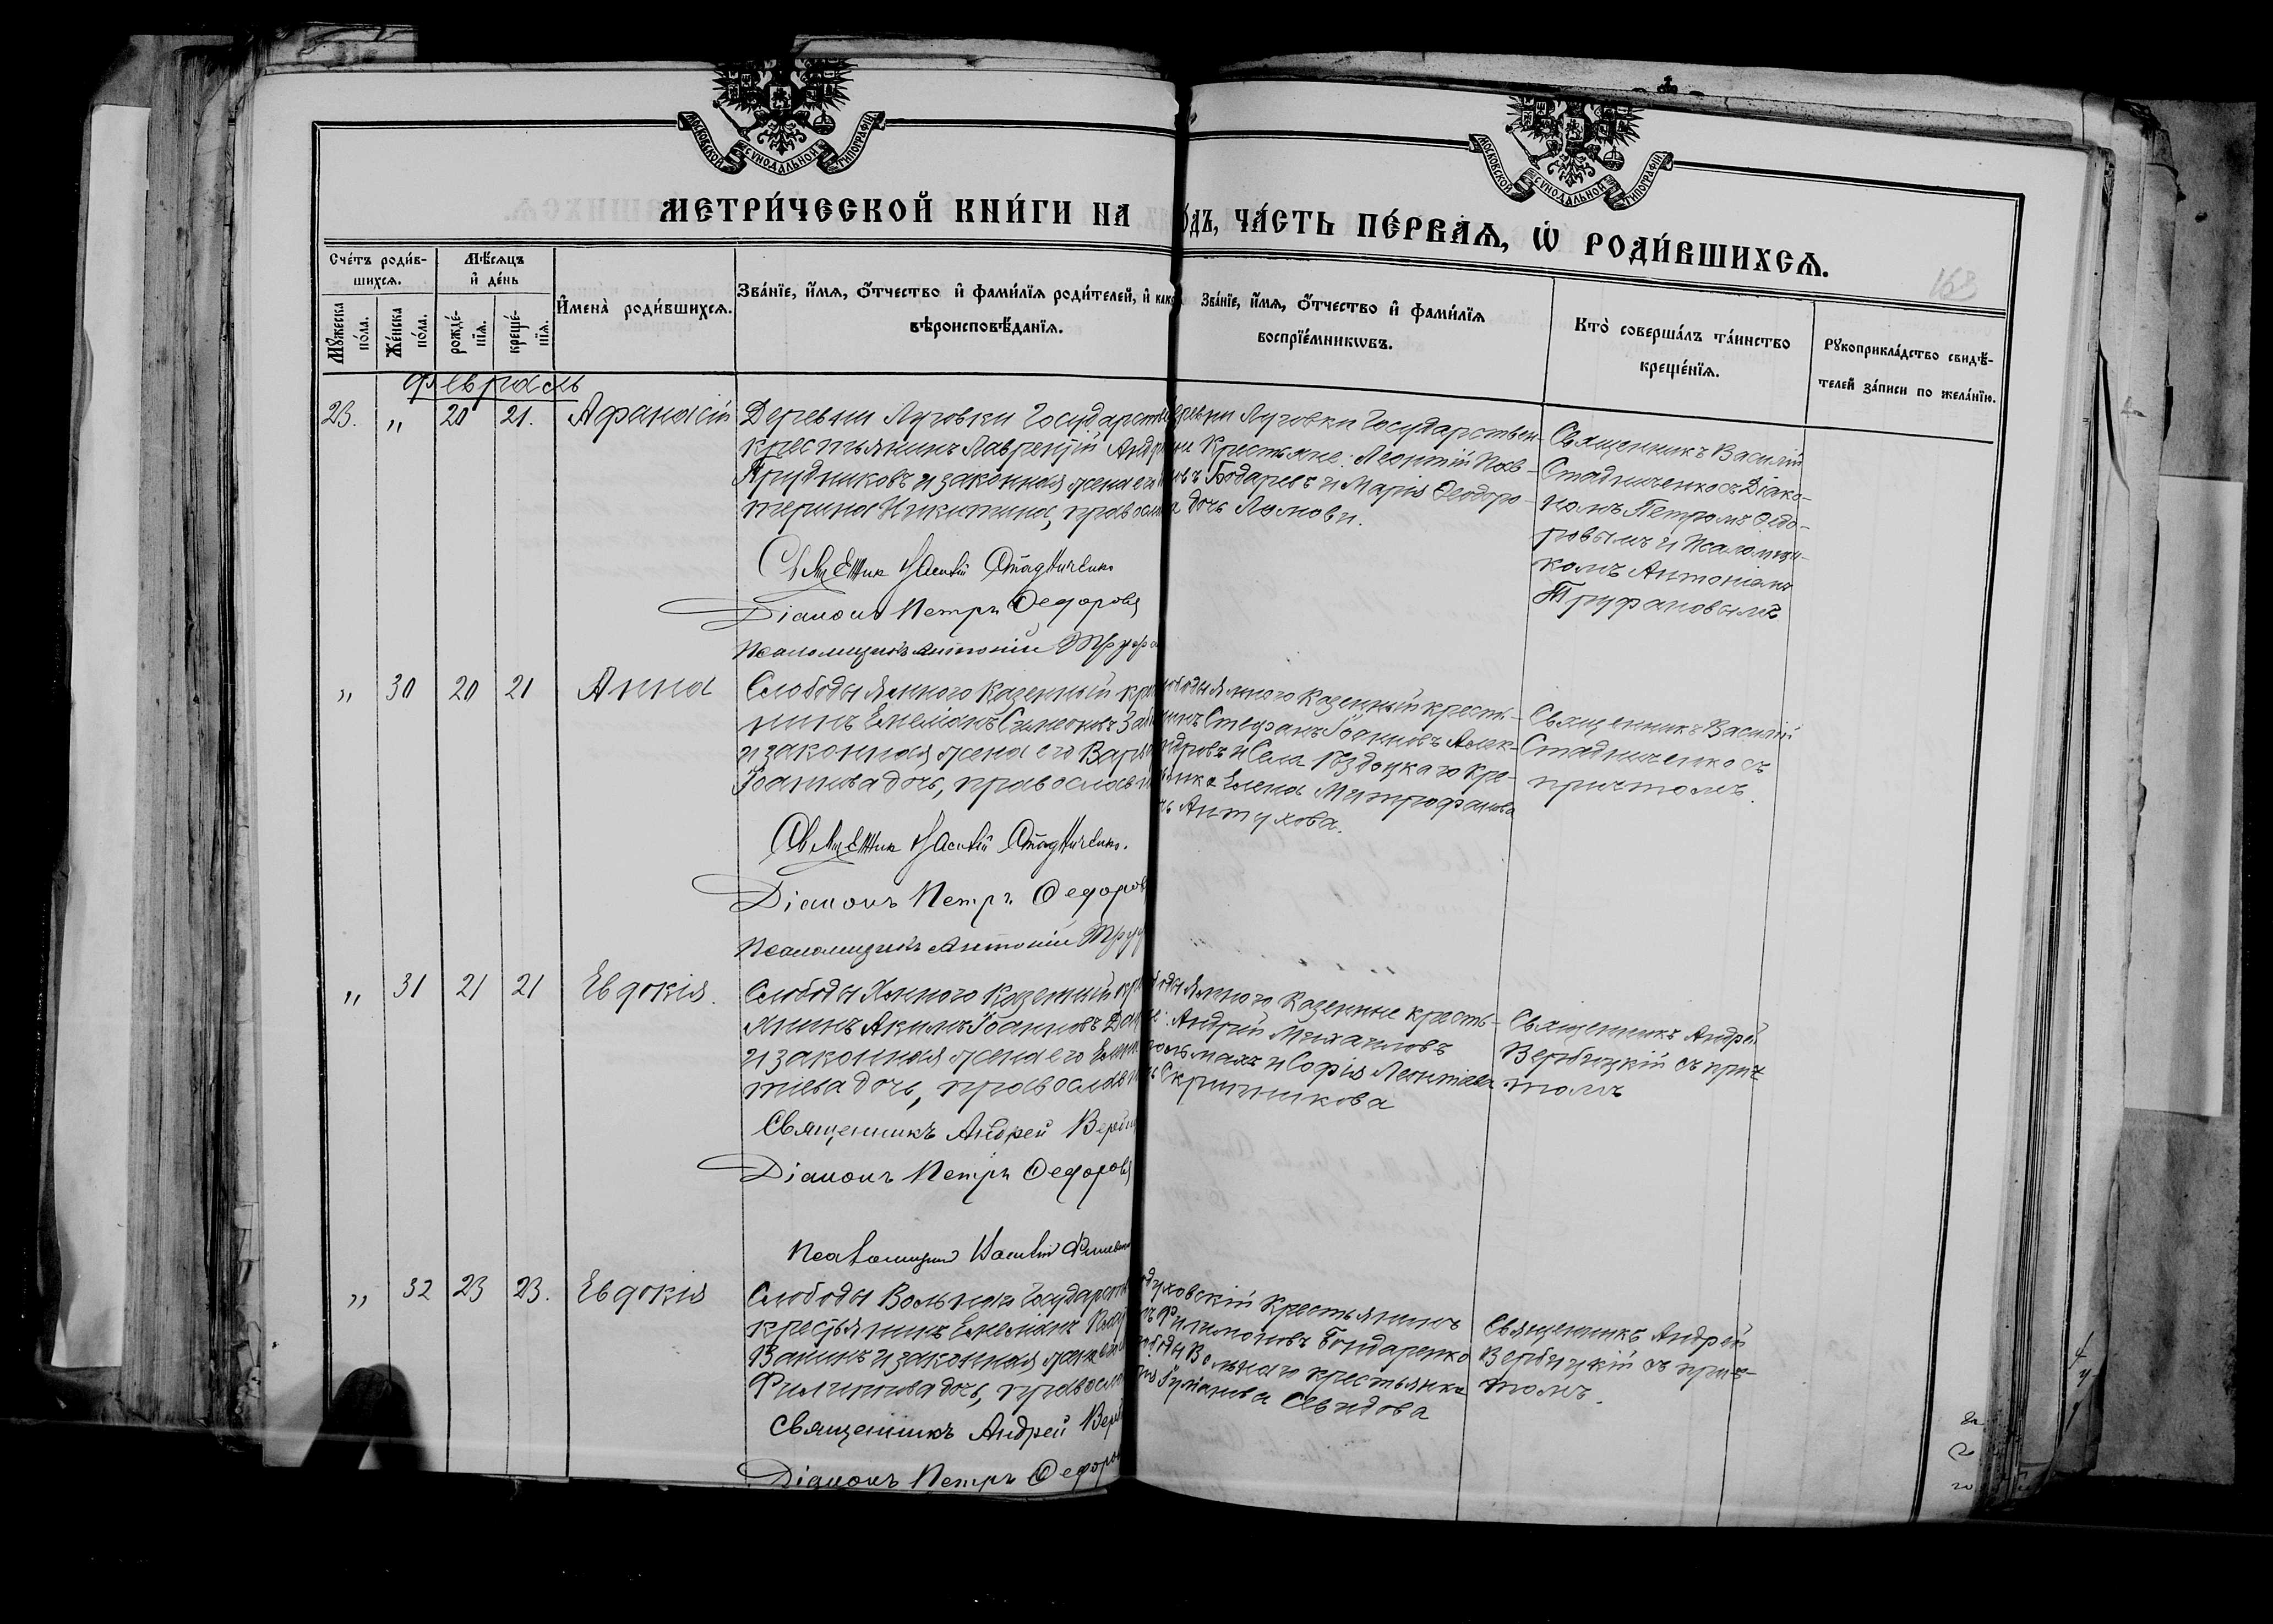 МОСКОВСКОЙ СѴНОДАЛЬНОЙ ТИПОГРАФІИ
МОСКОВСКОЙ СѴНОДАЛЬНОЙ ТИПОГРАФІИ
МЕТРИ́ЧЕСКОЙ КНИ́ГИ НА
О́ДЪ, ЧА́СТЬ ПЕ́РВАЯ, Ѡ҆ РОДИ́ВШИХСЯ.
168
Сче́тъ роди́в-
шихсѧ.
Мꙋ́жеска по́ла.
Же́нска по́ла.
Мѣ́сѧцъ
и҆ де́нь
рожде́-
нїѧ.
креще́-
нїѧ.
И҆мена̀ роди́вшихсѧ.
Зва́нїе, и҆́мѧ, ѻ҆́тчество и҆ фами́лїѧ роди́телей, и҆ како
вѣроисповѣ́данїѧ.
Зва́нїе, и҆́мѧ, ѻ҆́тчество и҆ фами́лїѧ
воспрїе́мникѡвъ.
Кто̀ соверша́лъ та́инство
креще́нїѧ.
Рꙋкоприкла́дство свидѣ́-
телей за́писи по жела́нїю.
Февраль
23. „ 20 21. Афанасій
Деревни Луговки Государств
крестьянинъ Лаврентій Андр
Прудниковъ и законная жена его
терина Никитина, правосла
Священникъ Василій Стадниченко
Діаконъ Петръ Федоровъ
Псаломщикъ Антоній Труфа
еревни Луговки Государствен-
ни Крестьяне: Леонтій Пав-
овъ Бодаревъ и Марія Ѳеодоро-
а дочь Ломови.
Священникъ Василій
Стадниченко съ Діако-
номъ Петромъ Ѳедо-
ровымъ и Псаломщи-
комъ Антоніемъ
Труфановымъ
„ 30 20 21 Анна
Слободы Ямного Казенный кре
нинъ Емеліанъ Симеоновъ
и законная жена его Варв
Іоаннова дочь, православн
Священникъ Василій Стадниченко.
Діаконъ Петръ Федоровъ
Псаломщикъ Антоній Труф
ободы Ямного Казенный кресть-
нинъ Стефанъ Іоанновъ Алек-
ндровъ и Села Поздоцкаго Кре-
янка Елена Митрофанова
чь Антухова.
Священникъ Василій
Стадниченко съ
причтомъ.
„ 31 21 21 Евдокія.
Слободы Ямного Казенный кре
янинъ Акимъ Іоанновъ
и законная жена его Елен
тіева дочь, православн
Священникъ Андрей Верби
Діаконъ Петръ Федоровъ
Псаломщикъ Василій
оды Ямного Казенные кресть-
не: Андрей Михаиловъ
ольмахъ и Софія Леонтіева
ь Скрипникова
Священникъ Андрей
Вербицкій съ прич
томъ
„ 32 23 23. Евдокія
Слободы Вольнаго Государств
крестьянинъ Емеліанъ
Ванинъ и законная жена
Филиппова дочь, правосла
Священникъ Андрей Верб
Діаконъ Петръ Федоров
одуховскій Крестьянинъ
ъ Филимоновъ Бондаренко
ободы Вольнаго крестьянка
Гуріанова Свидова
Священникъ Андрей
Вербицкій съ прич-
томъ.